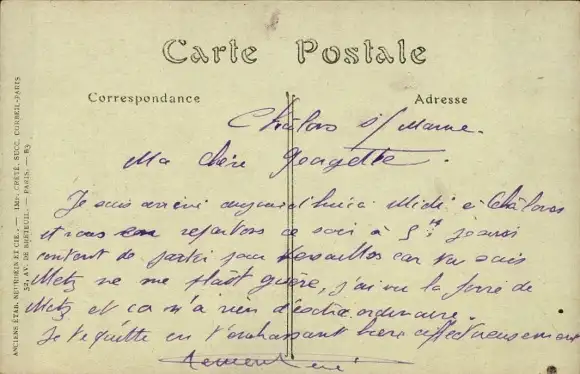 Carte Postale
Correspondance
Adresse
Châlons s/ Marne.
Ma chère Georgette.
Je suis arrivé aujourd'hui à Midi à Châlons
et nous repartons ce soir à 5h
content de partir pour Versailles car tu sais
Metz ne me plaît guère, j'ai vu la foire de
Metz et ça n'a rien d'extraordinaire.
Je te quitte en t'embrassant bien affectueusement
ANCIENS ÉTAB. NEURDEIN ET CIE. — IMP. CRÉTÉ, SUCC. CORBEIL-PARIS
52, AV. DE BRETEUIL. — PARIS. —